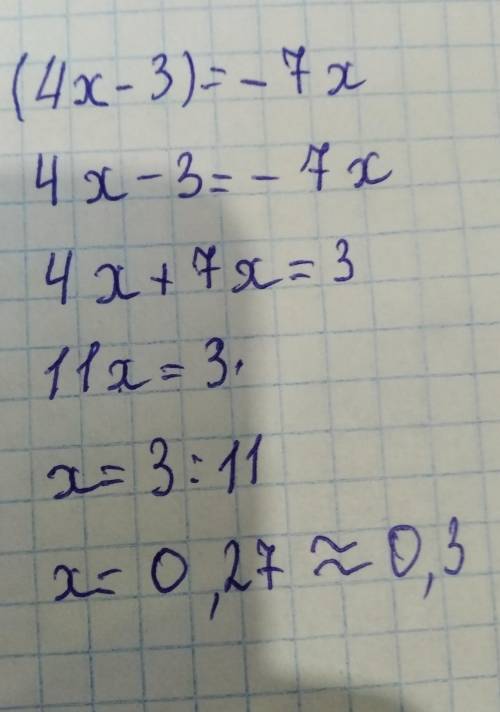 (4x-3)=-7x
4x-3=-7x
4x+7x=3
11x=3.
x=3:11
x=0,27≈0,3